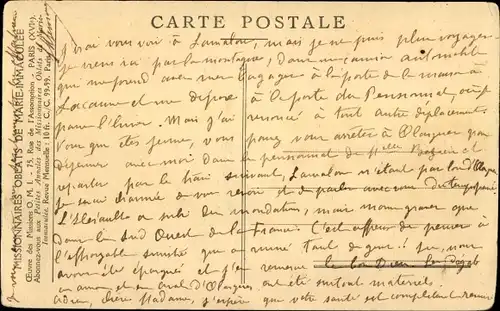 CARTE POSTALE
MISSIONNAIRES OBLATS DE MARIE-IMMACULÉE
Œuvre des Missions O. M. I. - 75, Rue de l'Assomption, PARIS (XVIe)
Abonnez-vous aux Petites Annales des Missionnaires Oblats de Marie-
Immaculée. Revue Mensuelle : 10 fr. C./C. 99-99. Paris
J'irai vous voir à Lamalou, mais je ne puis plus voyager
je viens ici par la montagne, dans un camion automobile
qui me prend avec mes bagages à la porte de la maison à
Lacaune et me dépose à la porte du Pensionnat, où je
pour l'hiver. Mais j'ai renoncé à tout autre déplacement
Vous qui êtes jeune, vous pouvez vous arrêter à Olargues
déjeuner avec moi dans le pensionnat de
repartir par le train suivant, Lamalou n'étant pas loin d'Olargues
je serai charmée de vous revoir et de parler avec vous
L'Hérault a subi des inondations, mais moins graves que
dans le Sud Ouest de la France. C'est affreux de penser à
l'effroyable sinistre qui a ruiné tant de gens !
avons été épargnés et j'en remercie le bon Dieu
en amont et en aval d'Olargues ont été surtout matériels.
Adieu, chère Madame, j'espère que votre santé est complètement